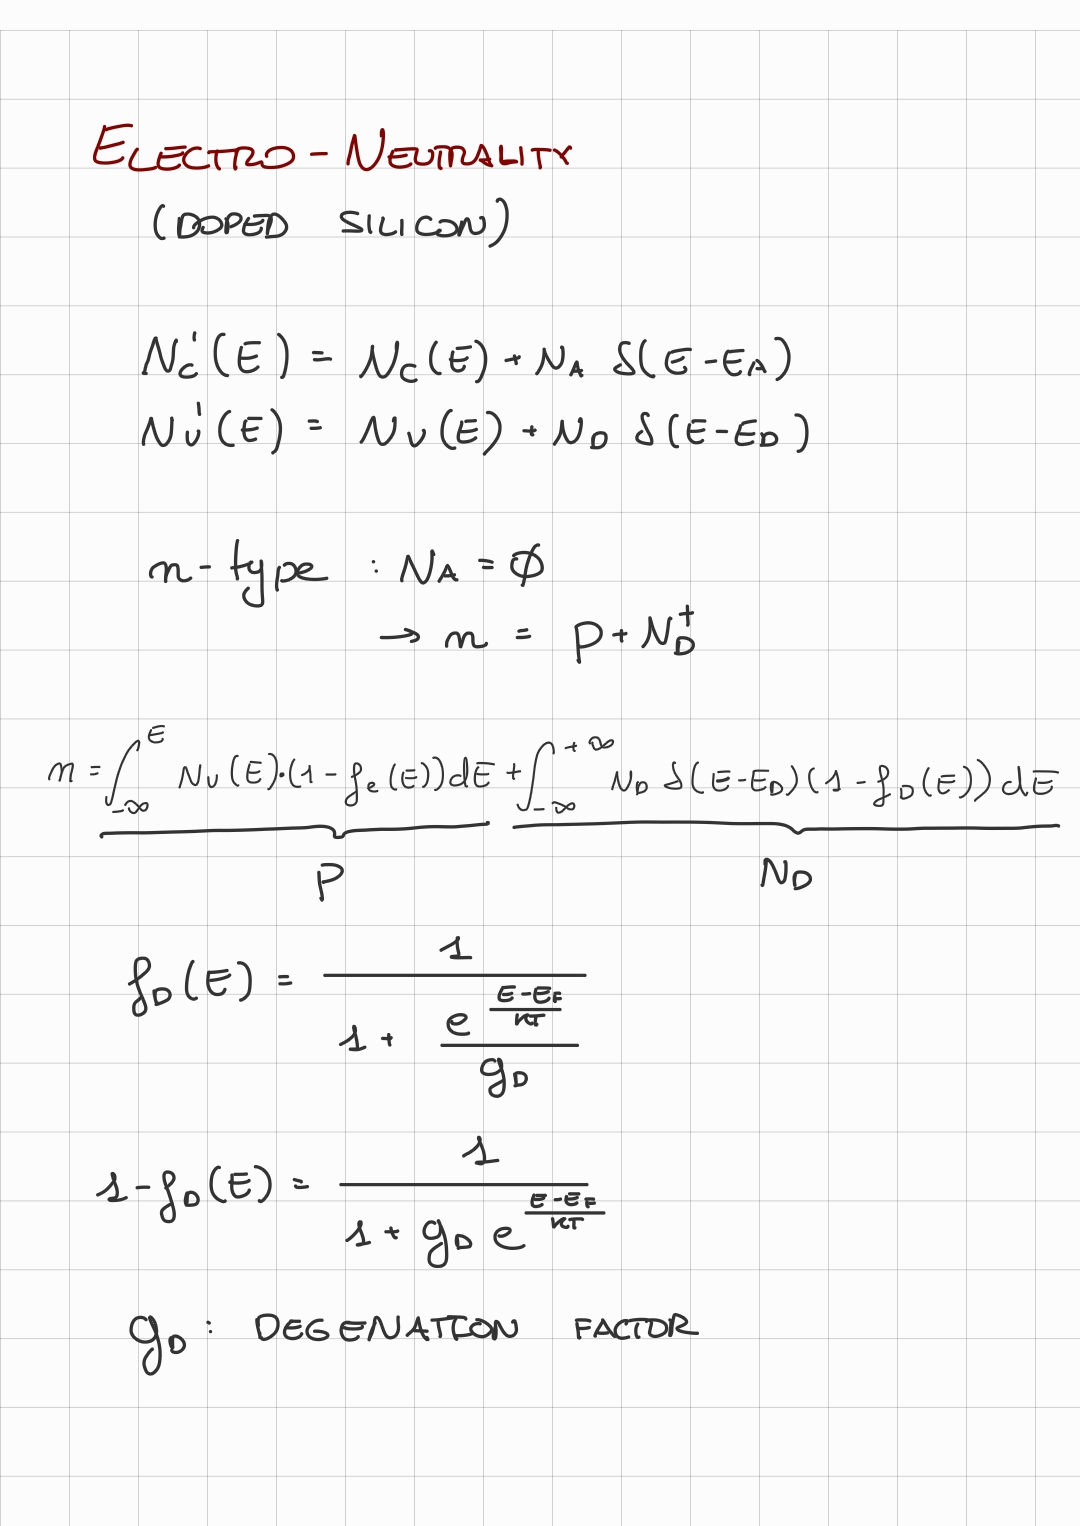 ELECTRO-NEUTRALITY
(DOPED SILICON)
N_C'(E) = N_C(E) + N_A δ(E-E_A)
N_V'(E) = N_V(E) + N_D δ(E-E_D)
n-type : N_A = Ø
→ n = p + N_D^+
n = ∫_{-∞}^{E} N_V(E)·(1-f_e(E))dE + ∫_{-∞}^{+∞} N_D δ(E-E_D)(1-f_D(E))dE
P N_D
f_D(E) = 1 / (1 + e^{(E-E_F)/KT} / g_D)
1-f_D(E) = 1 / (1 + g_D e^{(E-E_F)/KT})
g_D : DEGENATION FACTOR